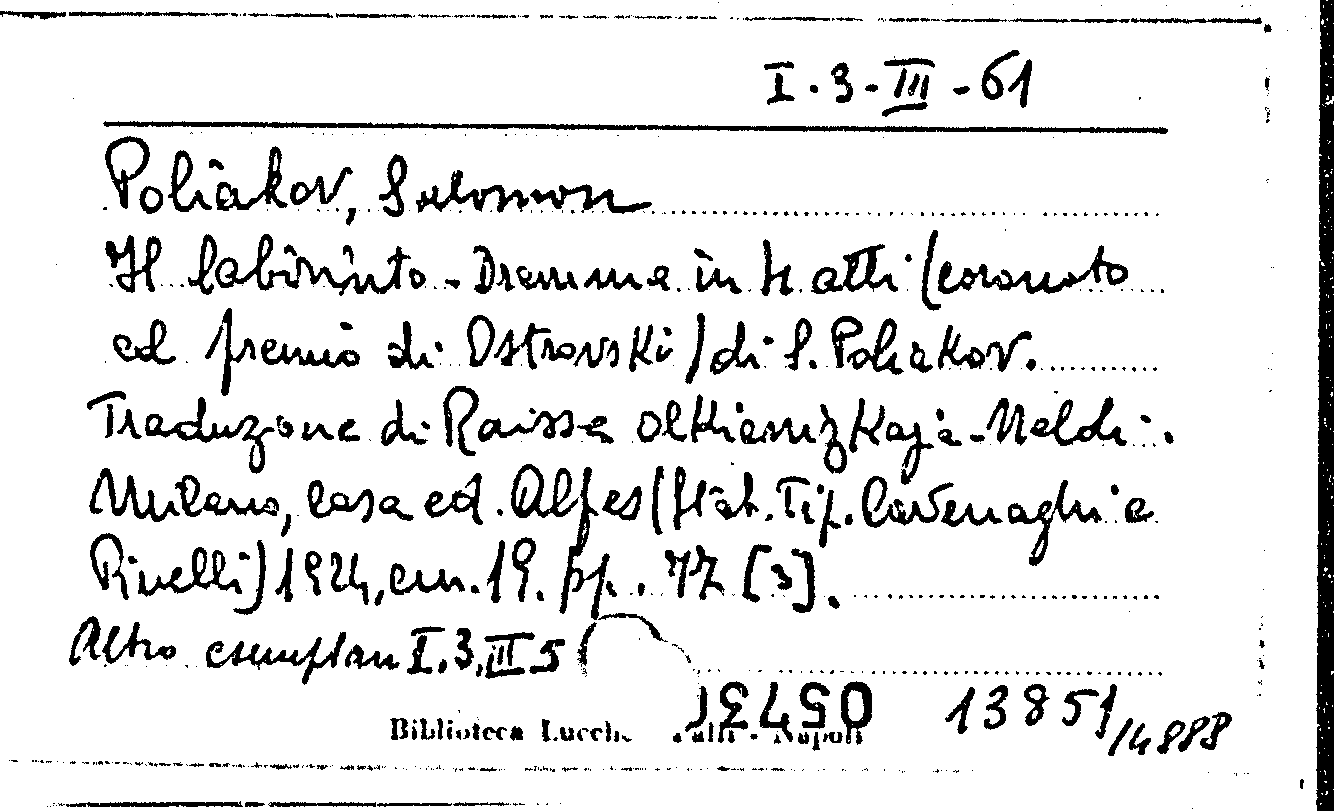 I.3-III-61
Poliakov, Salomon
Il labirinto - Dramma in 4 atti (coronato
col premio di Ostrovski) di S. Poliakov.
Traduzione di Raissa Olkienizkaja-Naldi.
Milano, Casa ed. Alpes (Stab. Tip. Cavenaghi e
Pinelli) 1924, cm. 19. pp. 77 [3].
Altro esemplare I.3.III 5
0573
13851/14888
Biblioteca Lucche - Napoli